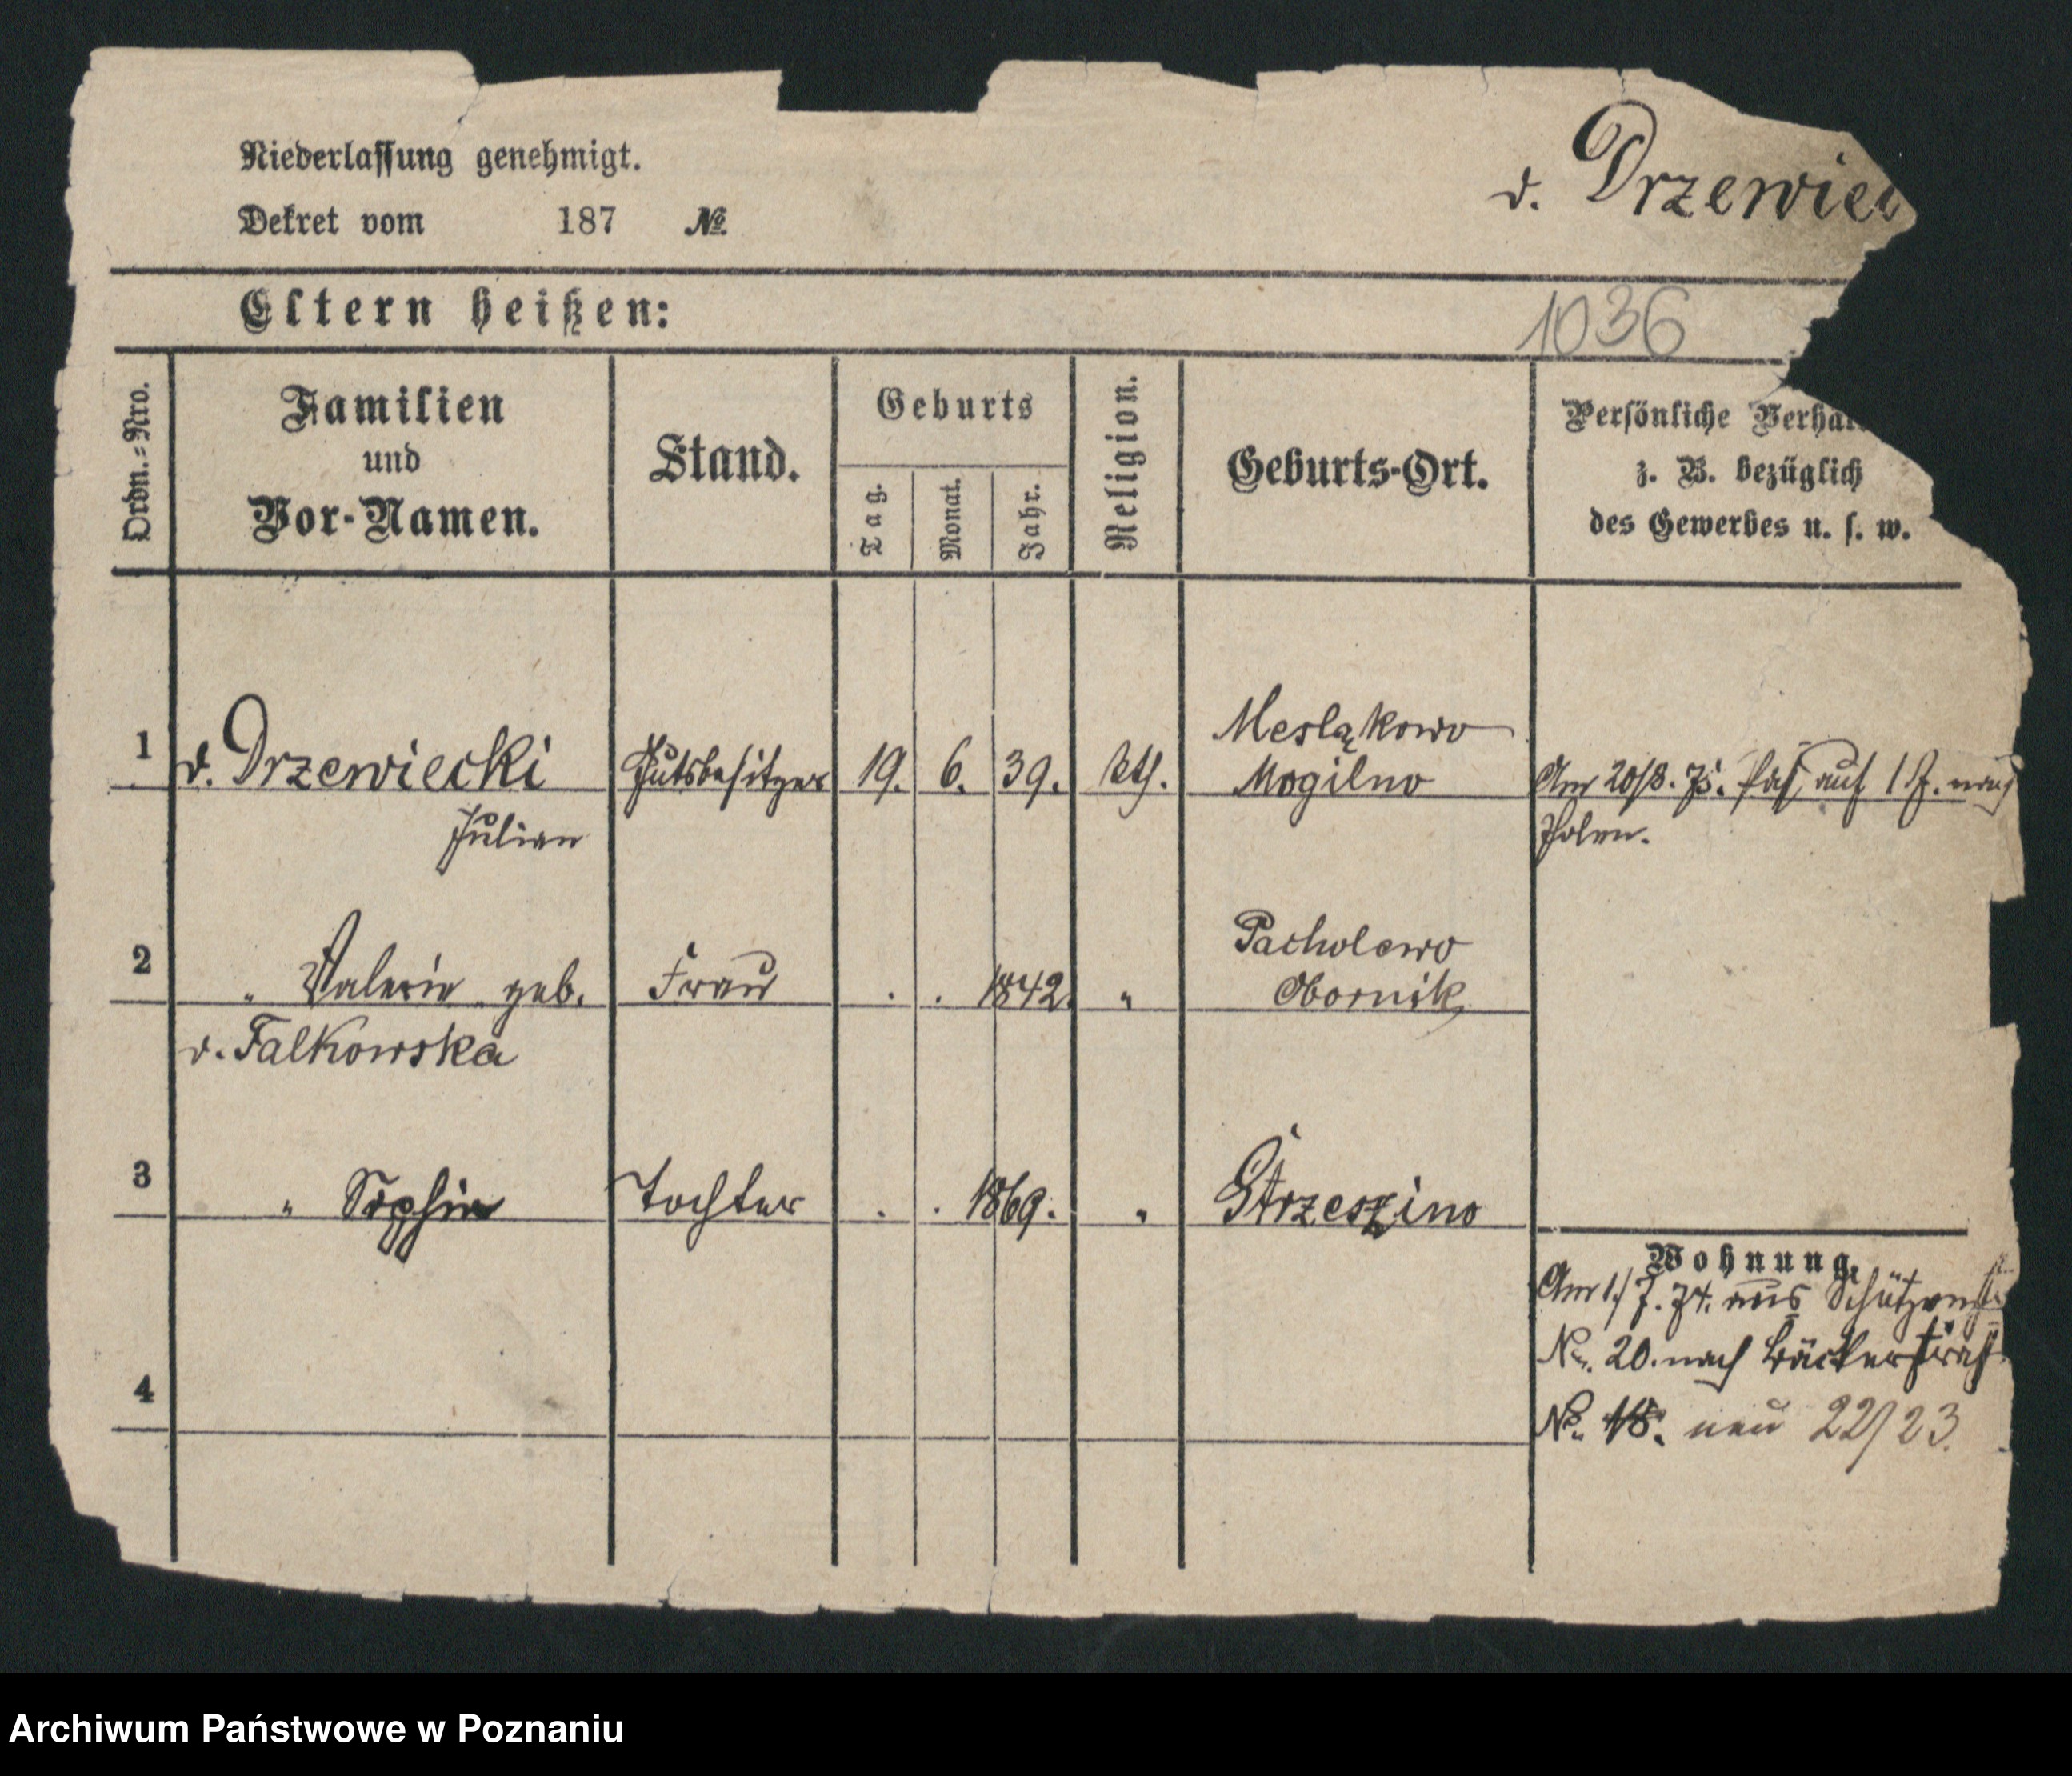 Niederlassung genehmigt.
v. Drzewiec
Dekret vom 187 №
Eltern heißen:
1036
Ordn.-Nro.
Familien
und
Vor-Namen.
Stand.
Geburts
Tag.
Monat.
Jahr.
Religion.
Geburts-Ort.
Persönliche Verhäl
z. B. bezüglich
des Gewerbes u. s. w.
Mesląkowo
1 v. Drzewiecki Gutsbesitzer 19. 6. 39. kth. Mogilno Am 20/8. 75. Paß auf 1 J. nach
Julian Polen.
Pacholewo
2 " Valerie geb. Frau . . 1842. " Obornik
v. Falkowska
3 " Sophie Tochter . . 1869. " Strzeszino
Wohnung.
Am 1/7. 74. aus Schützenst
No. 20. nach Bäckerstraß
4 No. 18. neu 22/23.
Archiwum Państwowe w Poznaniu